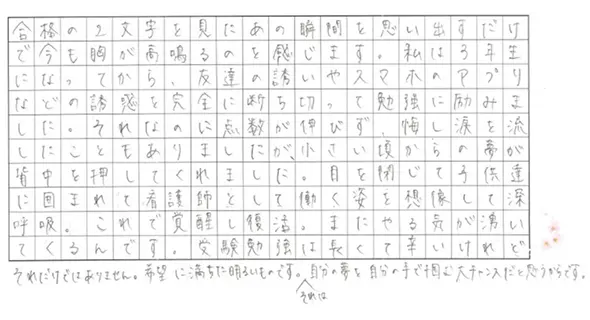 合格の2文字を見たあの瞬間を思い出すだけ
で今も胸が高鳴るのを感じます。私は3年生
になってから、友達の誘いやスマホのアプリ
などの誘惑を完全に断ち切って勉強に励みま
した。それなのに点数が伸びず、悔し涙を流
したこともありましたが、小さい頃からの夢が
背中を押してくれました。目を閉じて子供達
に囲まれて看護師として働く姿を想像して深
呼吸。これで覚醒し復活。またやる気が湧い
てくるんです。受験勉強は長くて辛いけれど
それだけではありません。希望に満ちた明るいものです。自分の夢を自分の手で掴む大チャンスだと思うからです。
それは